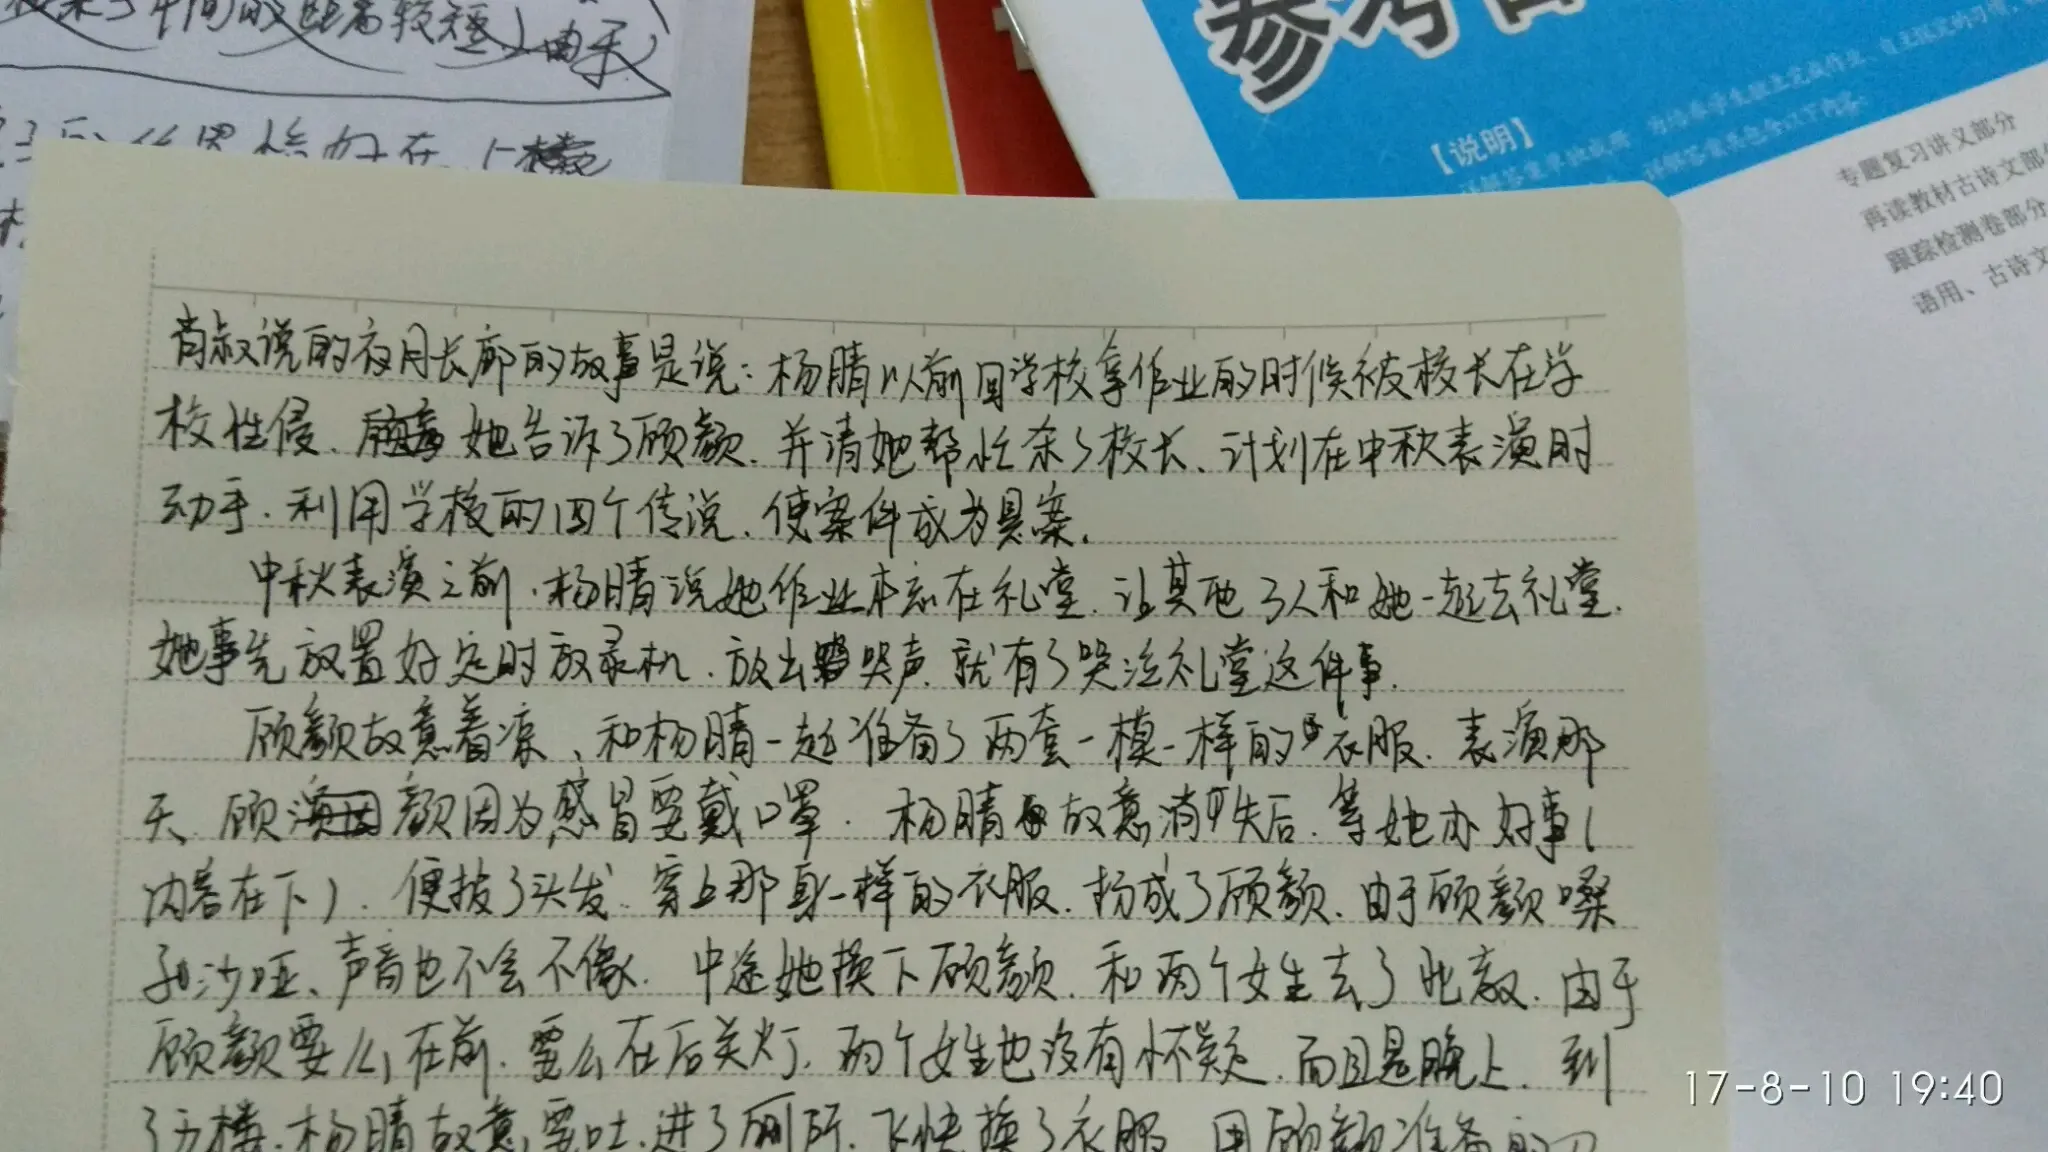 由于
参考答
【说明】
专题复习讲义部分
再读教材古诗文部
跟踪检测卷部分
语用、古诗文
肖叔说的夜月长廊的故事是说：杨晴以前回学校拿作业的时候被校长在学
校性侵、她告诉了顾颜、并请她帮忙杀了校长、计划在中秋表演时
动手、利用学校的四个传说、使案件成为悬案。
中秋表演之前、杨晴说她作业本忘在礼堂、让其他了人和她一起去礼堂、
她事先放置好定时放录机、放出哭声、就有了哭泣礼堂这件事.
顾颜故意着凉、和杨晴一起准备了两套一模一样的衣服、表演那
天、顾颜因为感冒要戴口罩. 杨晴故意消失后、等她办好事(
内容在下)、便披了头发、穿上那身一样的衣服、扮成了顾颜、由于顾颜嗓
子沙哑、声音也不会不像. 中途她换下顾颜、和两个女生去了北教、由于
顾颜要么在前、要么在后关灯、两个女生也没有怀疑、而且是晚上、到
了五楼、杨晴故意要吐、进了厕所、飞快换了衣服、用顾颜准备的刀
17-8-10 19:40